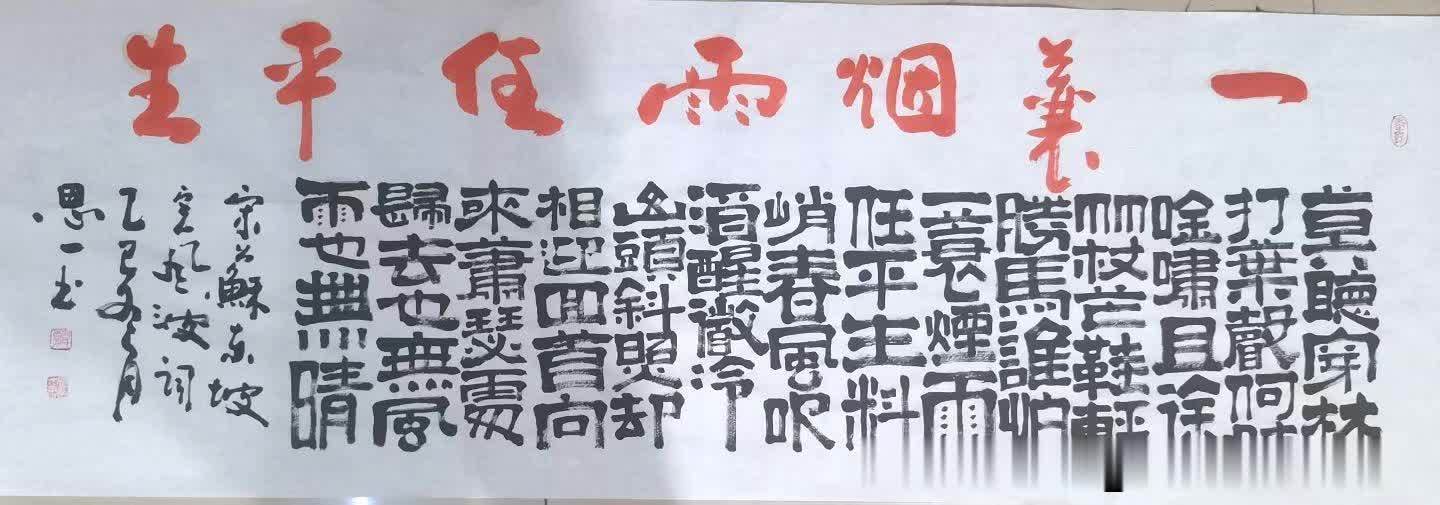 一蓑烟雨任平生
莫聽穿林
打葉聲何
唫嘯且徐
竹杖芒鞋輕
勝馬誰怕
一蓑煙雨
任平生料
峭春風吹
酒醒微冷
山頭斜照却
相迎回首向
來蕭瑟處
歸去也無風
雨也無晴
宋蘇东坡
定風波詞
乙巳月
思一书